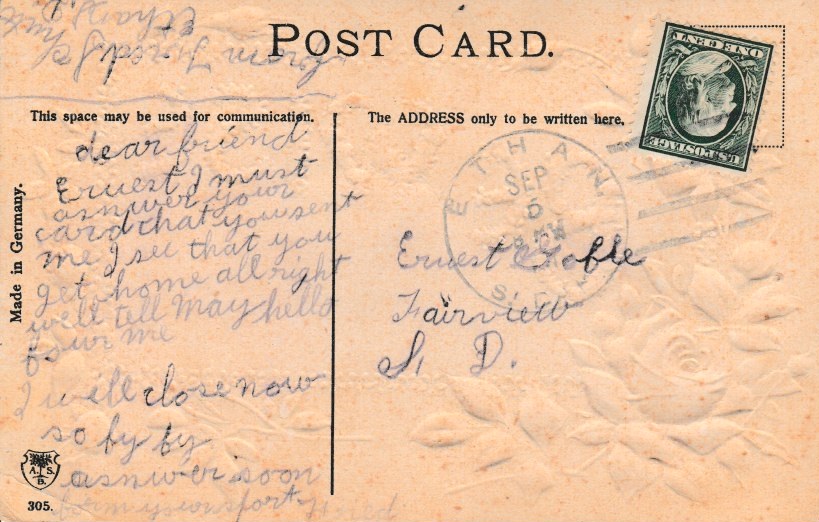 POST CARD.
This space may be used for communication.
The ADDRESS only to be written here.
Made in Germany.
dear friend
Ernest I must
asnwer your
card that you sent
me I see that you
get home all right
well tell May hello
four me
I will close now
so by by
asnwer soon
from
ETHAN
SEP
5
S. D.
Ernest
Fairview
S. D.
U.S. POSTAGE
ONE CENT
A. S.
B.
305.